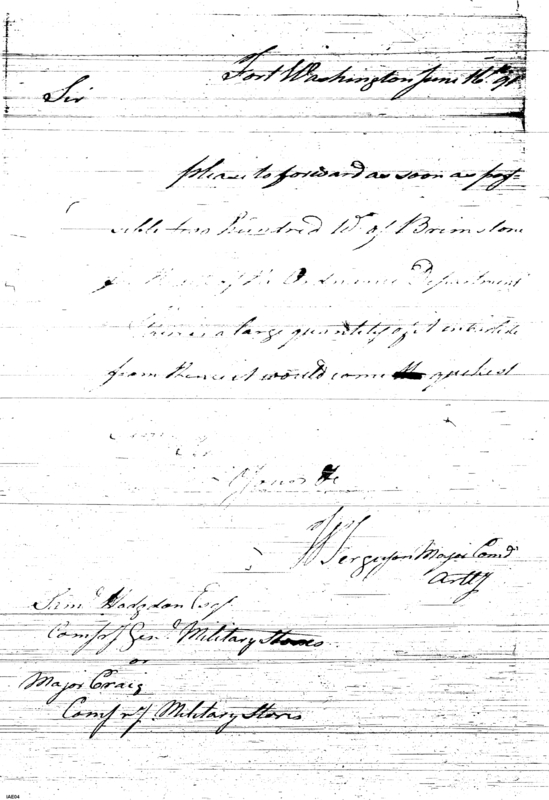 Fort Washington June 16th 91
Sir
please to forward as soon as pos=
sible two Hundred Wt of Brimstone
for the use of the Ordnance Department
there is a large quantity of it
from thence it would come
Yours &c
Wm Ferguson Major Comd
Artty
Saml Hodgdon Esqr
Comsry Genl Military Stores
or
Major Craig
Comsry Military Stores
IAE04